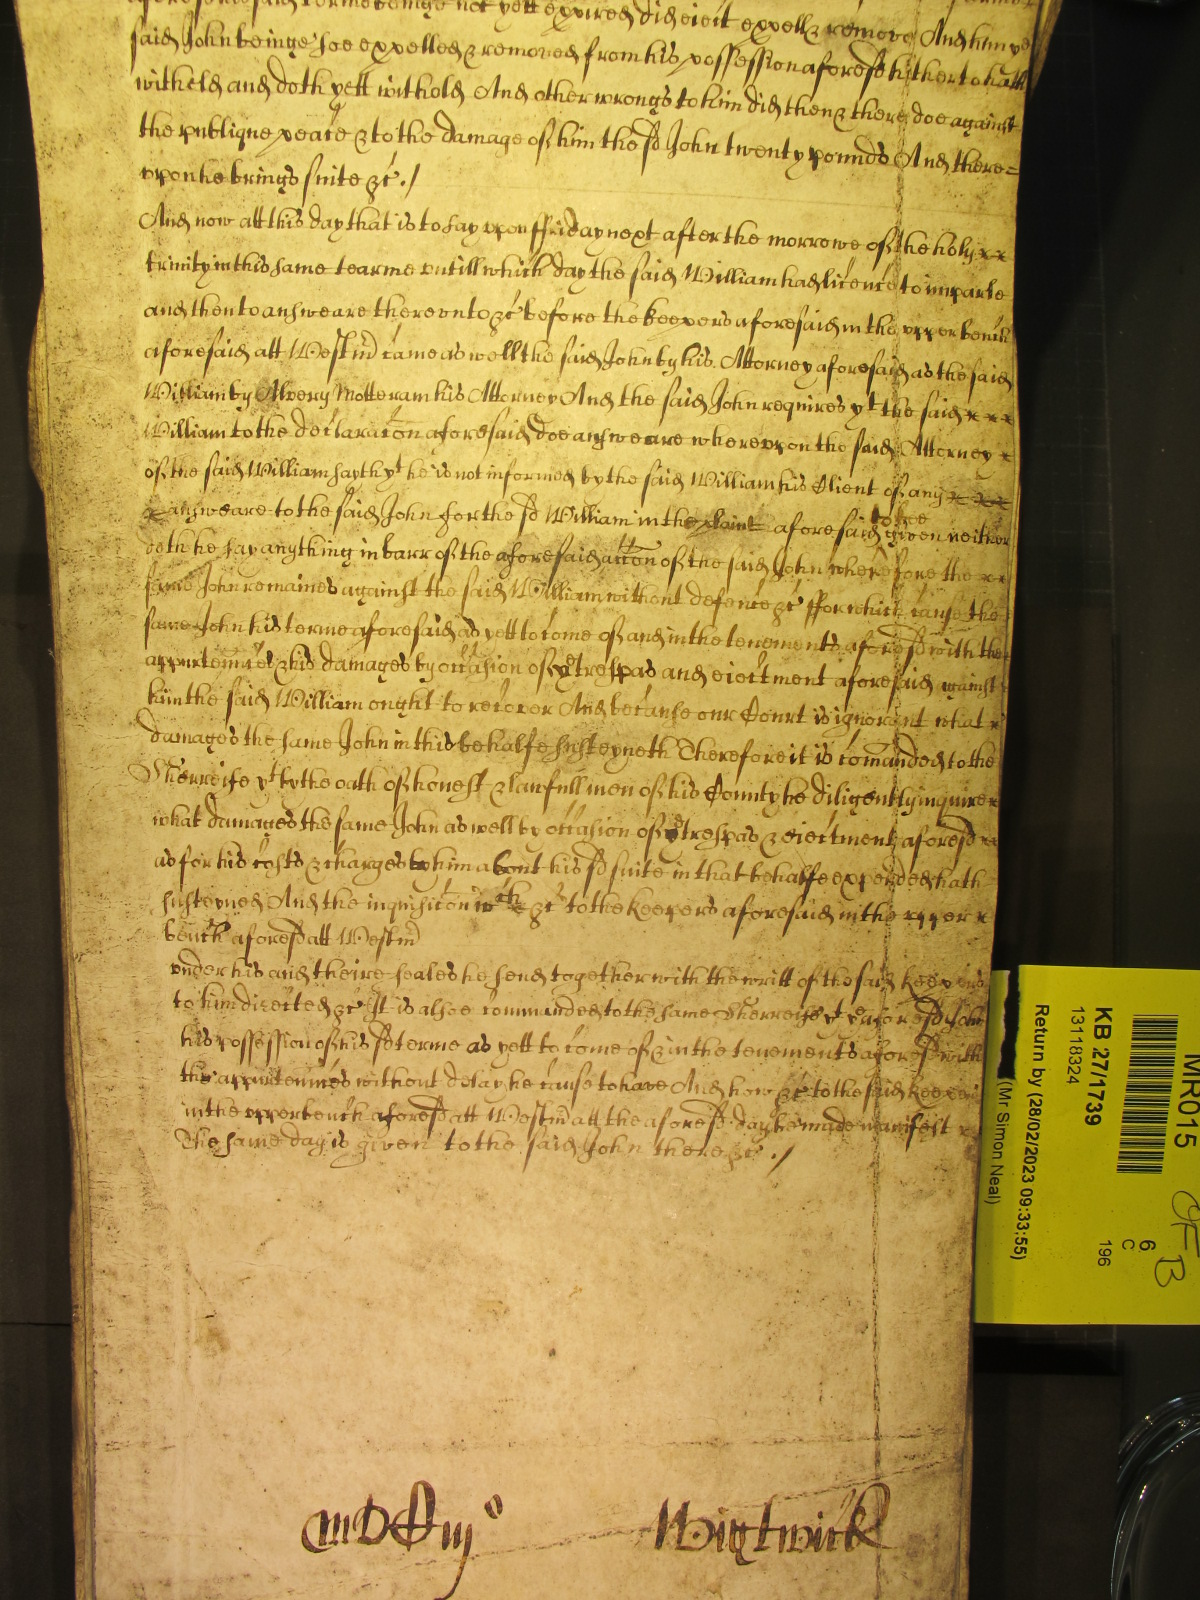 aforesaid said terme beinge not yett expired did eiect expell & remove And him ye
said John beinge soe expelled & removed from his possession aforesd hitherto hath
witheld and doth yett withold And other wrongs to him did then & there doe against
the publique peace & to the damage of him the sd John twenty pounds And there=
upon he brings suite &c ./
And now att this day that is to say upon ffriday next after the morrowe of the holy
trinity in this same tearme untill which day the said William had licence to imparle
and then to answeare thereonto &c before the keepers aforesaid in the upper bench
aforesaid att Westmr came as well the said John by his Attorney aforesaid as the said
William by Alvery Motteram his Attorney And the said John requires yt the said
William to the declaracon aforesaid doe answeare whereupon the said Attorney
of the said William sayth yt he is not informed by the said William his Client of any
answeare to the said John for the sd William in the plaint aforesaid to bee given neither
doth he say anything in barr of the aforesaid accon of the said John wherefore the
same John remaines against the said William without defence &c ffor which cause the
same John his terme aforesaid as yett to come of and in the tenements aforesd with the
appurtennces & his damages by occasion of ye trespas and eiectment aforesaid against
him the said William ought to recover And because our Court is ignorant what
damages the same John in this behalfe susteyneth Therefore it is comanded to the
Sherreife yt by the oath of honest & lawfull men of his County he diligently inquire
what damages the same John as well by occasion of ye trespas & eiectment aforesd
as for his costs & charges by him about his sd suite in that behalfe expended hath
susteyned And the inquisicon wch &c to the keepers aforesaid in the upper
bench aforesd att Westmr
under his and theire seales he send together with the writt of the said keepers
to him directed &c It is alsoe commanded to the same Sherreife yt ye aforesd John
his possession of his sd terme as yett to come of & in the tenements aforesd with
the appurtennces without delay he cause to have And how &c to the said keepers
in the upper bench aforesd att Westmr att the aforesd day he made manifest
The same day is given to the said John there &c ./
Wightwick
MR015
KB 27/1739
13118324
Return by (28/02/2023 09:33:55)
(Mr Simon Neal)
6
C
196